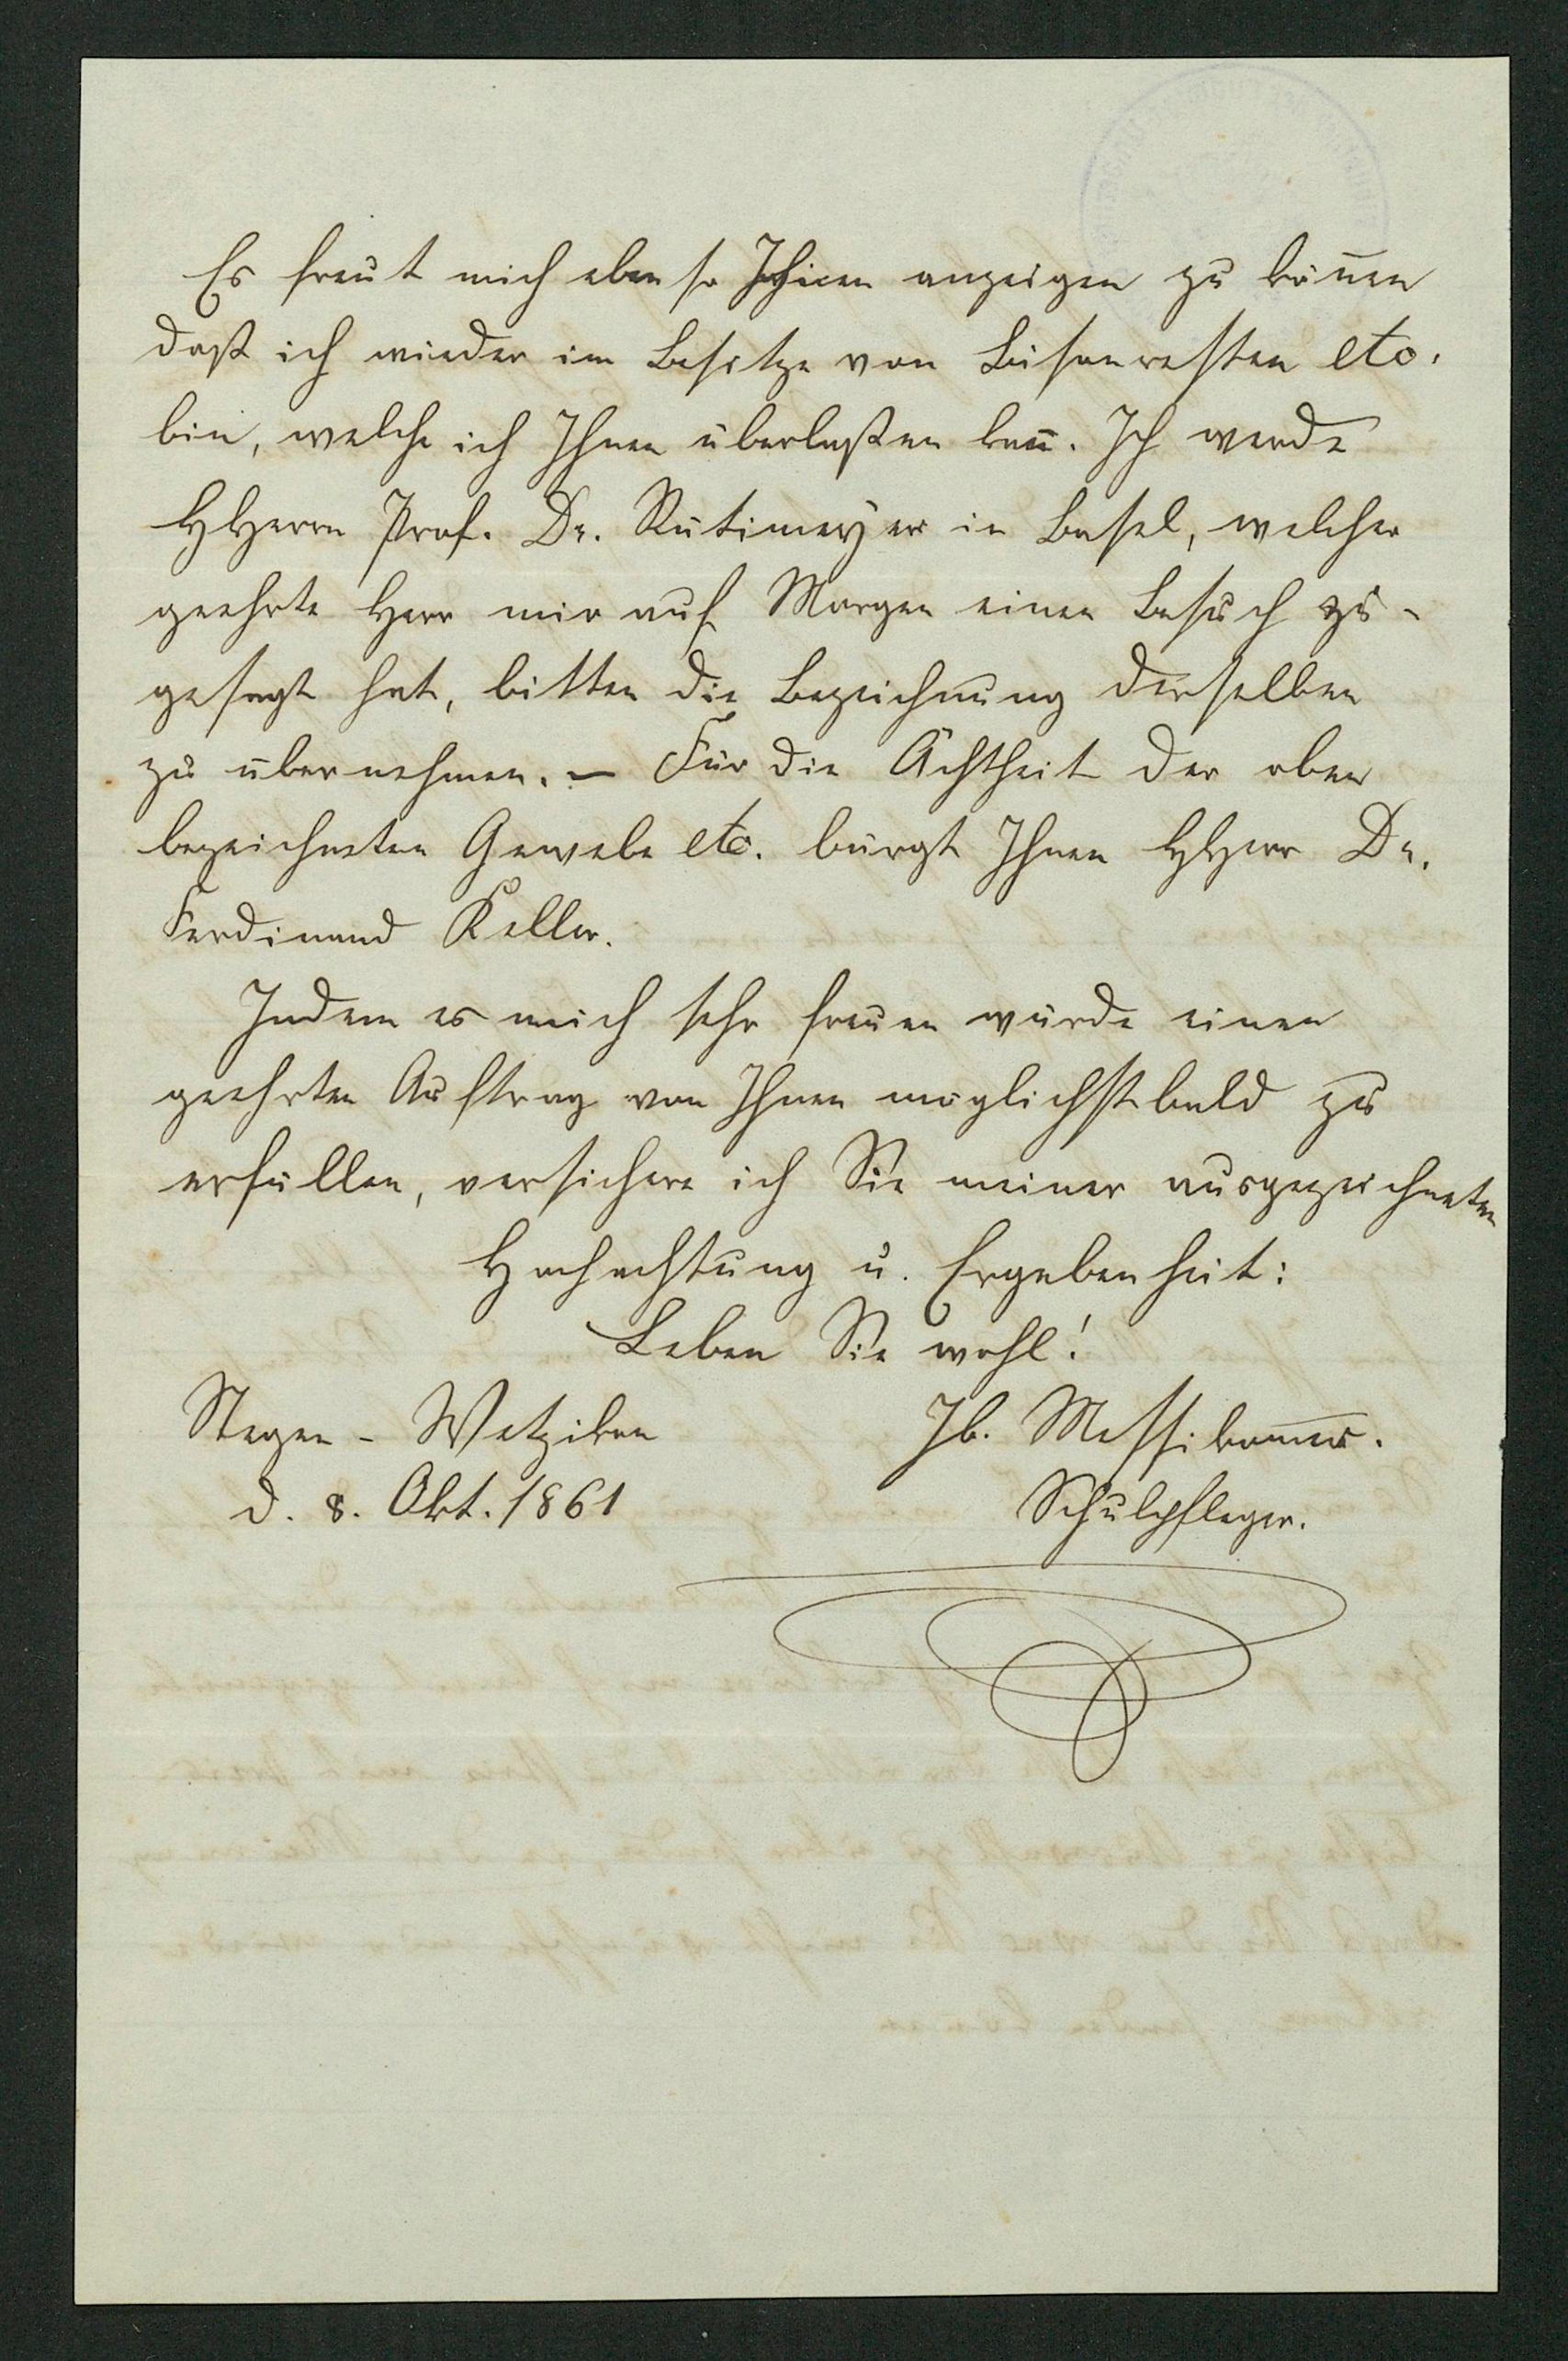 Es freut mich eben so Ihnen anzeigen zu koñen
daß ich wieder im Besitze von Bisonresten etc.
bin, welche ich Ihnen überlaßen kañ. Ich werde
HHerrn Prof. Dr. Rütimeyer in Basel, welcher
geehrte Herr mir auf Morgen einen Besuch zu-
gesagt hat, bitten die Bezeichnung derselben
zu übernehmen. — Für die Ächtheit der oben
bezeichneten Gewebe etc. bürgt Ihnen HHerr Dr.
Ferdinand Keller.
Indem es mich sehr freuen würde einen
geehrten Auftrag von Ihnen möglichst bald zu
erfüllen, versichere ich Sie meiner ausgezeichneten
Hochachtung u. Ergebenheit:
Leben Sie wohl!
Stegen - Wetzikon Jb. Messikom̄er.
d. 8. Okt. 1861 Schulpfleger.